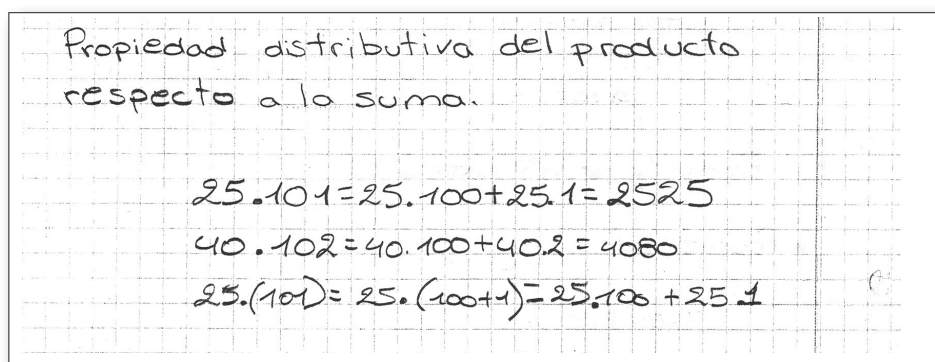 Propiedad distributiva del producto
respecto a la suma.
25.101=25.100+25.1=2525
40.102=40.100+40.2=4080
25.(101)=25.(100+1)=25.100+25.1